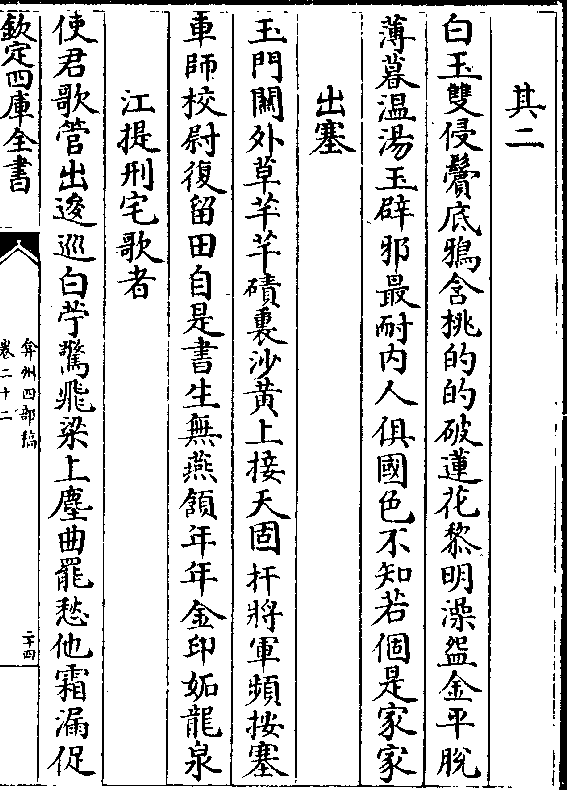 其二
白玉雙侵鬢底鴉含桃的的破蓮花黎明澡盌金平脫
薄暮温湯玉辟邪最耐内人俱國色不知若個是家家
出塞
玉門關外草芊芊磧裏沙黄上接天固扞將軍頻按塞
車師校尉復留田自是書生無燕頷年年金印妬龍泉
江提刑宅歌者
使君歌管出逡巡白苧驚飛梁上塵曲罷愁他霜漏促
欽定四庫全書
弇州四部稿
卷二十二
二十四